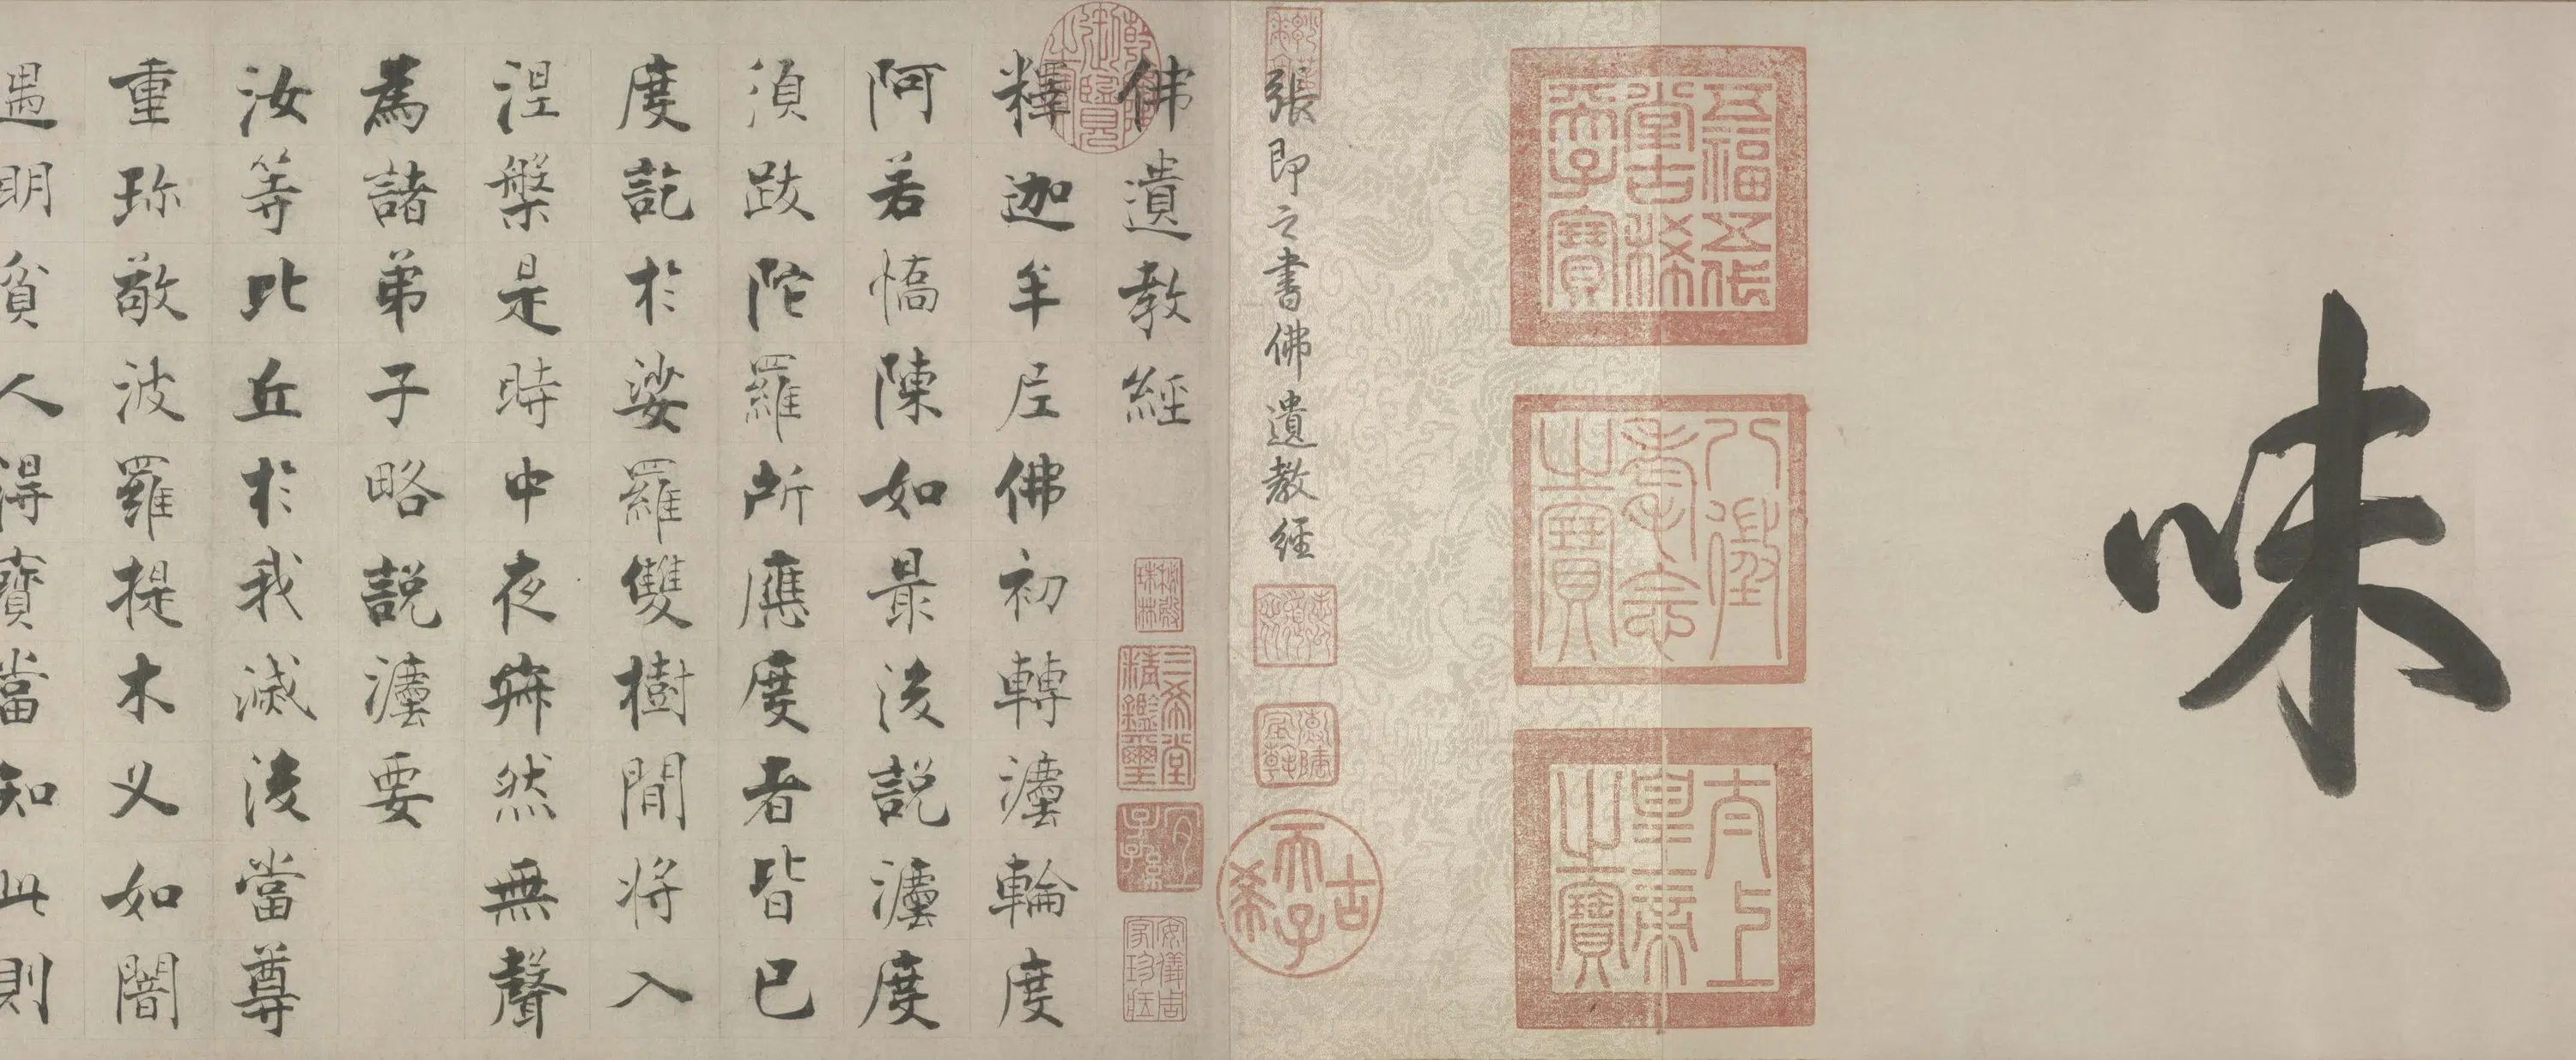 味
五福五代
堂古稀
天子寶
八徵
耄念
之寶
太上
皇帝
之寶
張即之書佛遺教經
古稀天子
佛遺教經
三希堂
精鑑璽
宜子孫
安儀周
家珍藏
乾隆御覽之寶
釋迦牟尼佛初轉灋輪度
阿若憍陳如最後說灋度
須跋陀羅所應度者皆已
度訖於娑羅雙樹間將入
涅槃是時中夜寂然無聲
為諸弟子略說灋要
汝等比丘於我滅後當尊
重珎敬波羅提木叉如闇
遇明貧人得寶當知此則